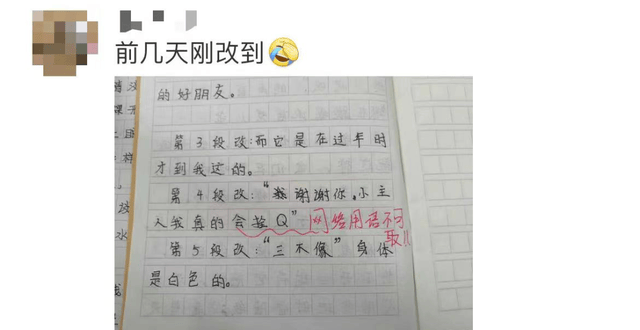 前几天刚改到🤣
的好朋友。
第3段改:而它是在过年时
才到我这的。
第4段改:“谢谢你,小主
人我真的会Q”网络用语不可取!!
第5段改:“三不像”身体
是白色的。